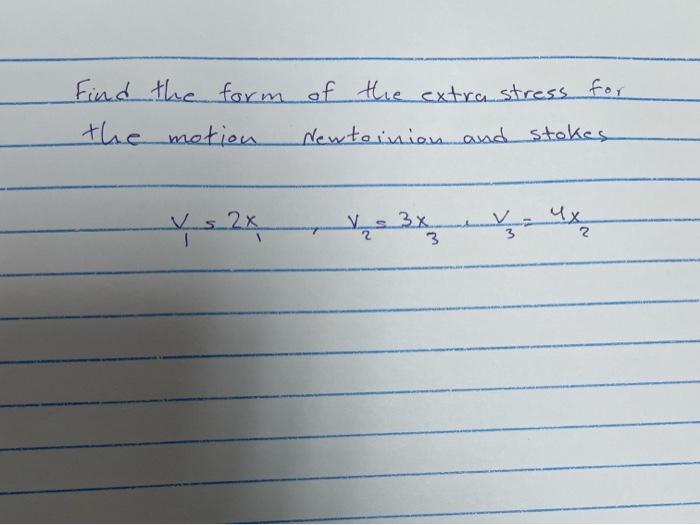 Find the form of the extra stress for
the motion Newtoinion and stokes
v₁ = 2x₁ , v₂ = 3x₃ , v₃ = 4x₂